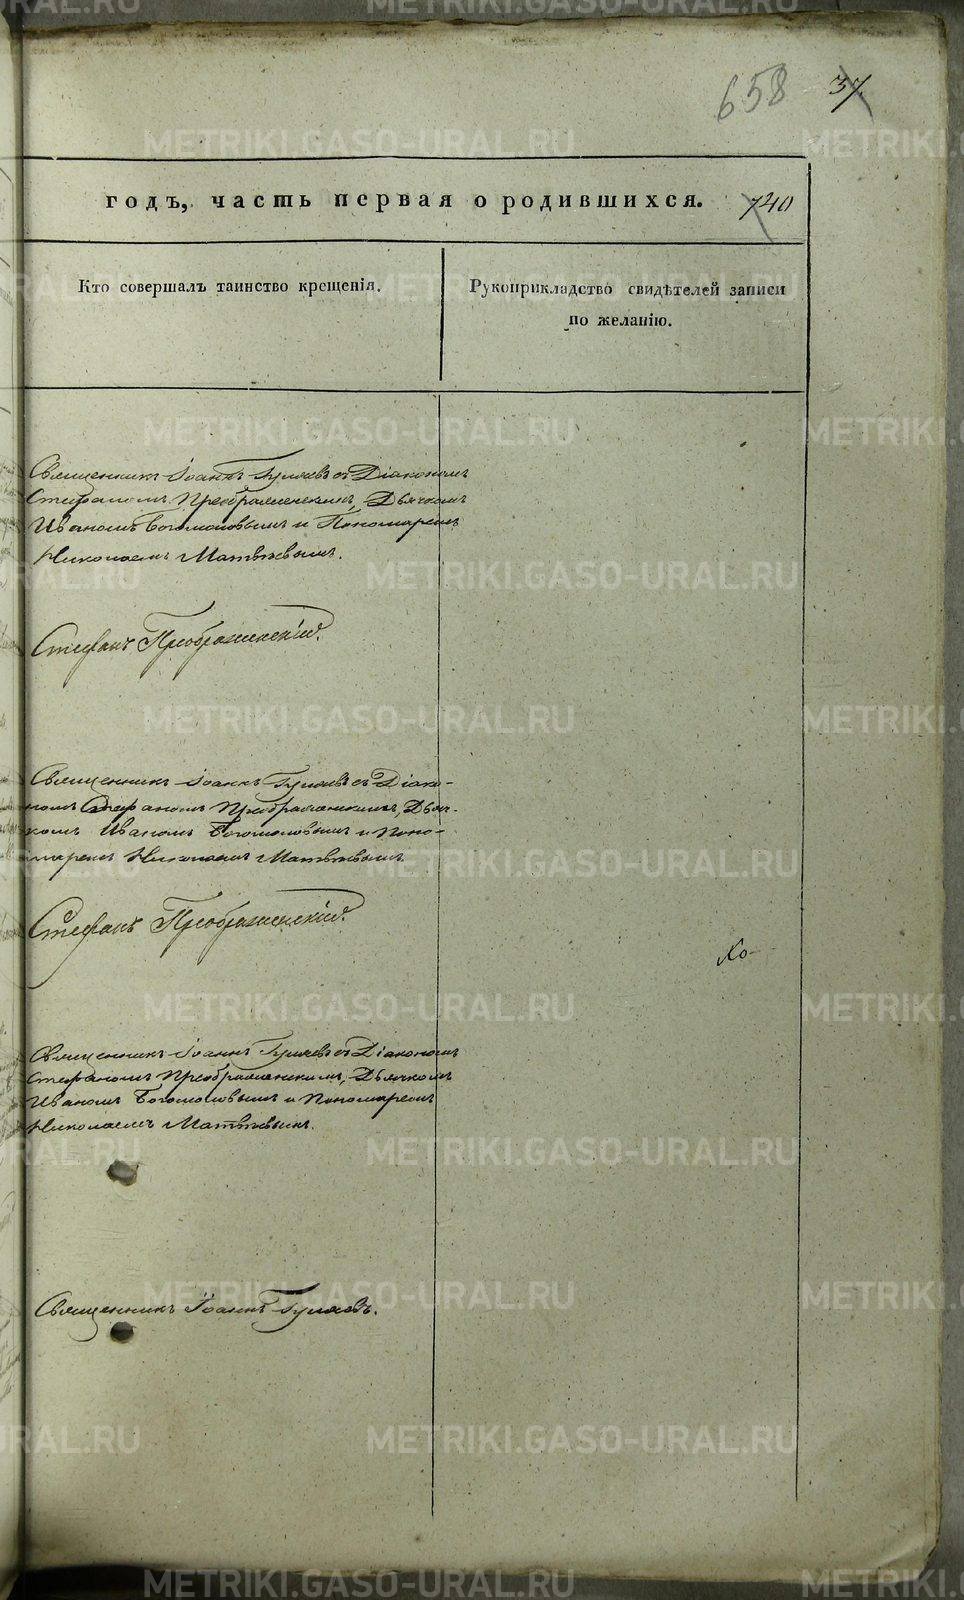 658 37.
годъ, часть первая о родившихся. 740
Кто совершалъ таинство крещенія.
Рукоприкладство свидѣтелей записи
по желанію.
Священникъ Іоаннъ Гуляевъ съ Діакономъ
Стефаномъ Преображенскимъ, Дьячкомъ
Иваномъ Богомоловымъ и Пономаремъ
Николаемъ Матвѣевымъ.
Стефанъ Преображенскій.
Священникъ Іоаннъ Гуляевъ съ Діако-
номъ Стефаномъ Преображенскимъ, Дьяч-
комъ Иваномъ Богомоловымъ и Поно-
маремъ Николаемъ Матвѣевымъ
Стефанъ Преображенскій.
Ко-
Священникъ Іоаннъ Гуляевъ съ Діакономъ
Стефаномъ Преображенскимъ, Дьячкомъ
Иваномъ Богомоловымъ и Пономаремъ
Николаемъ Матвѣевымъ.
Священникъ Іоаннъ Гуляевъ.
METRIKI.GASO-URAL.RU